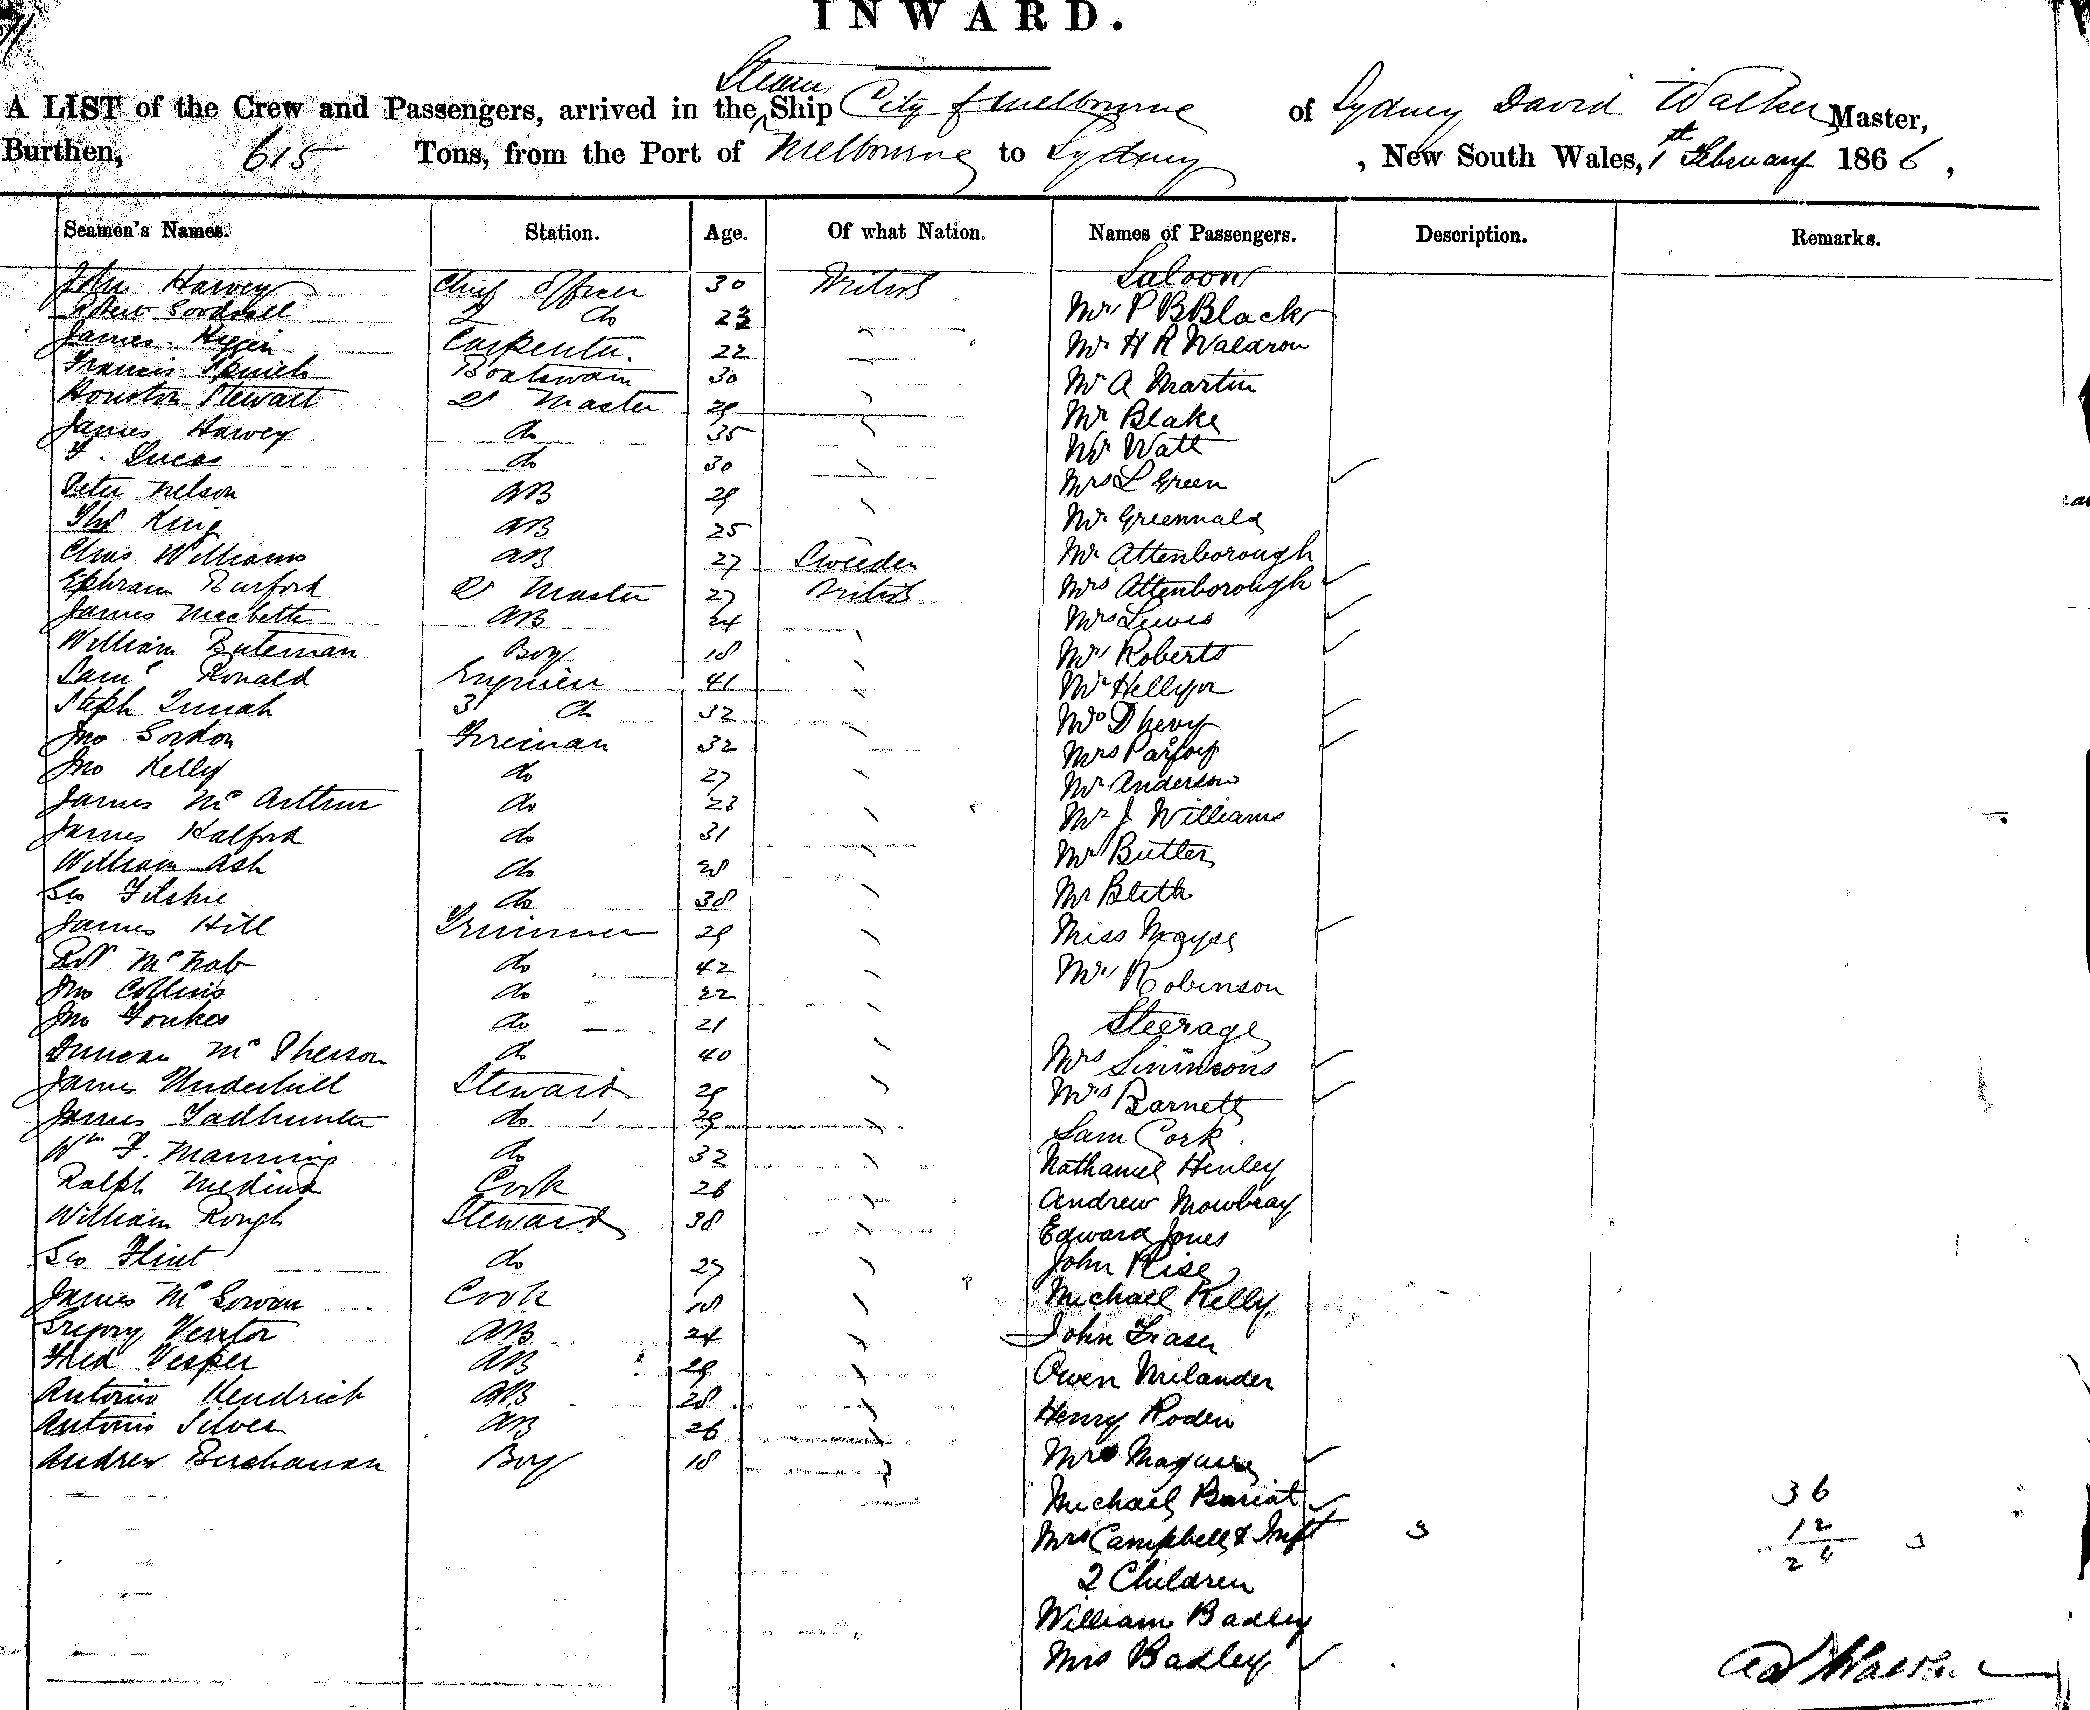 INWARD.
A LIST of the Crew and Passengers, arrived in the Steam Ship City of Melbourne of Sydney David Walker Master,
Burthen, 615 Tons, from the Port of Melbourne to Sydney, New South Wales, 1st February 1866,
Seamen's Names. Station. Age. Of what Nation. Names of Passengers. Description. Remarks.
John Harvey Chief Officer 30 British Saloon
Robert 2 do Mr P B Black
James Carpenter. 22 Mr H R Waldron
Francis Boatswain 30 Mr A Martin
Houston Stewart Qr Master 29 Mr Blake
James Harvey do 35 Mr Watt
Lucas do 30 Mrs L Green
Peter Nelson AB 29 Mr Greenwald
Thos King AB 25 Mr Attenborough
Chas Williams AB 27 Sweden Mrs Attenborough
Ephraim Burford Qr Master 27 British Mrs Lewis
James Macbeth AB 24 Mrs Roberts
William Bateman Boy 18 Mr Hellyer
Saml Ronald Engineer 41
Steph 3 do 32
Jno Gordon Fireman 32 Mr Anderson
Jno Kelly do 27 Mr J Williams
James McArthur do 23 Mr Butler
James Halford do 31 Mr Bleth
William Ash do 28 Miss
Geo do 38 Mr Robinson
James Hill Trimmer 29 Steerage
Robt McNab do 42 Mrs Simmons
Jno Collins do 22 Mrs Barnett
Jno do 21 Sam Cork
Duncan McPherson do 40 Nathaniel Henley
James Underhill Steward 29 Andrew Mowbray
James Tadhunter do 29 Edward Jones
Wm F. Manning do 32 John Rise
Ralph Medina Cook 26 Michael Kelly
William Rough Steward 38 John Fraser
Geo Flint do 27 Owen Milander
James McGowan Cook 18 Henry Roden
Gregory AB 24 Mrs
Fred Vesper AB 29 Michael
Antonio Hendrick AB 28 Mrs Campbell & Inft
Antonio Silver AB 26 2 Children
Andrew Buchanan Boy 18 William Badley
Mrs Badley
36
12
24
Walker